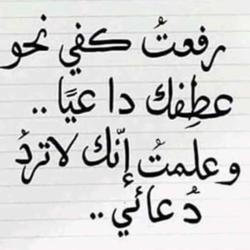 رفعتُ كفي نحو
عطِفك دا عيًا ..
وعلمتُ إنّك لاتردُ
دُعائي ..